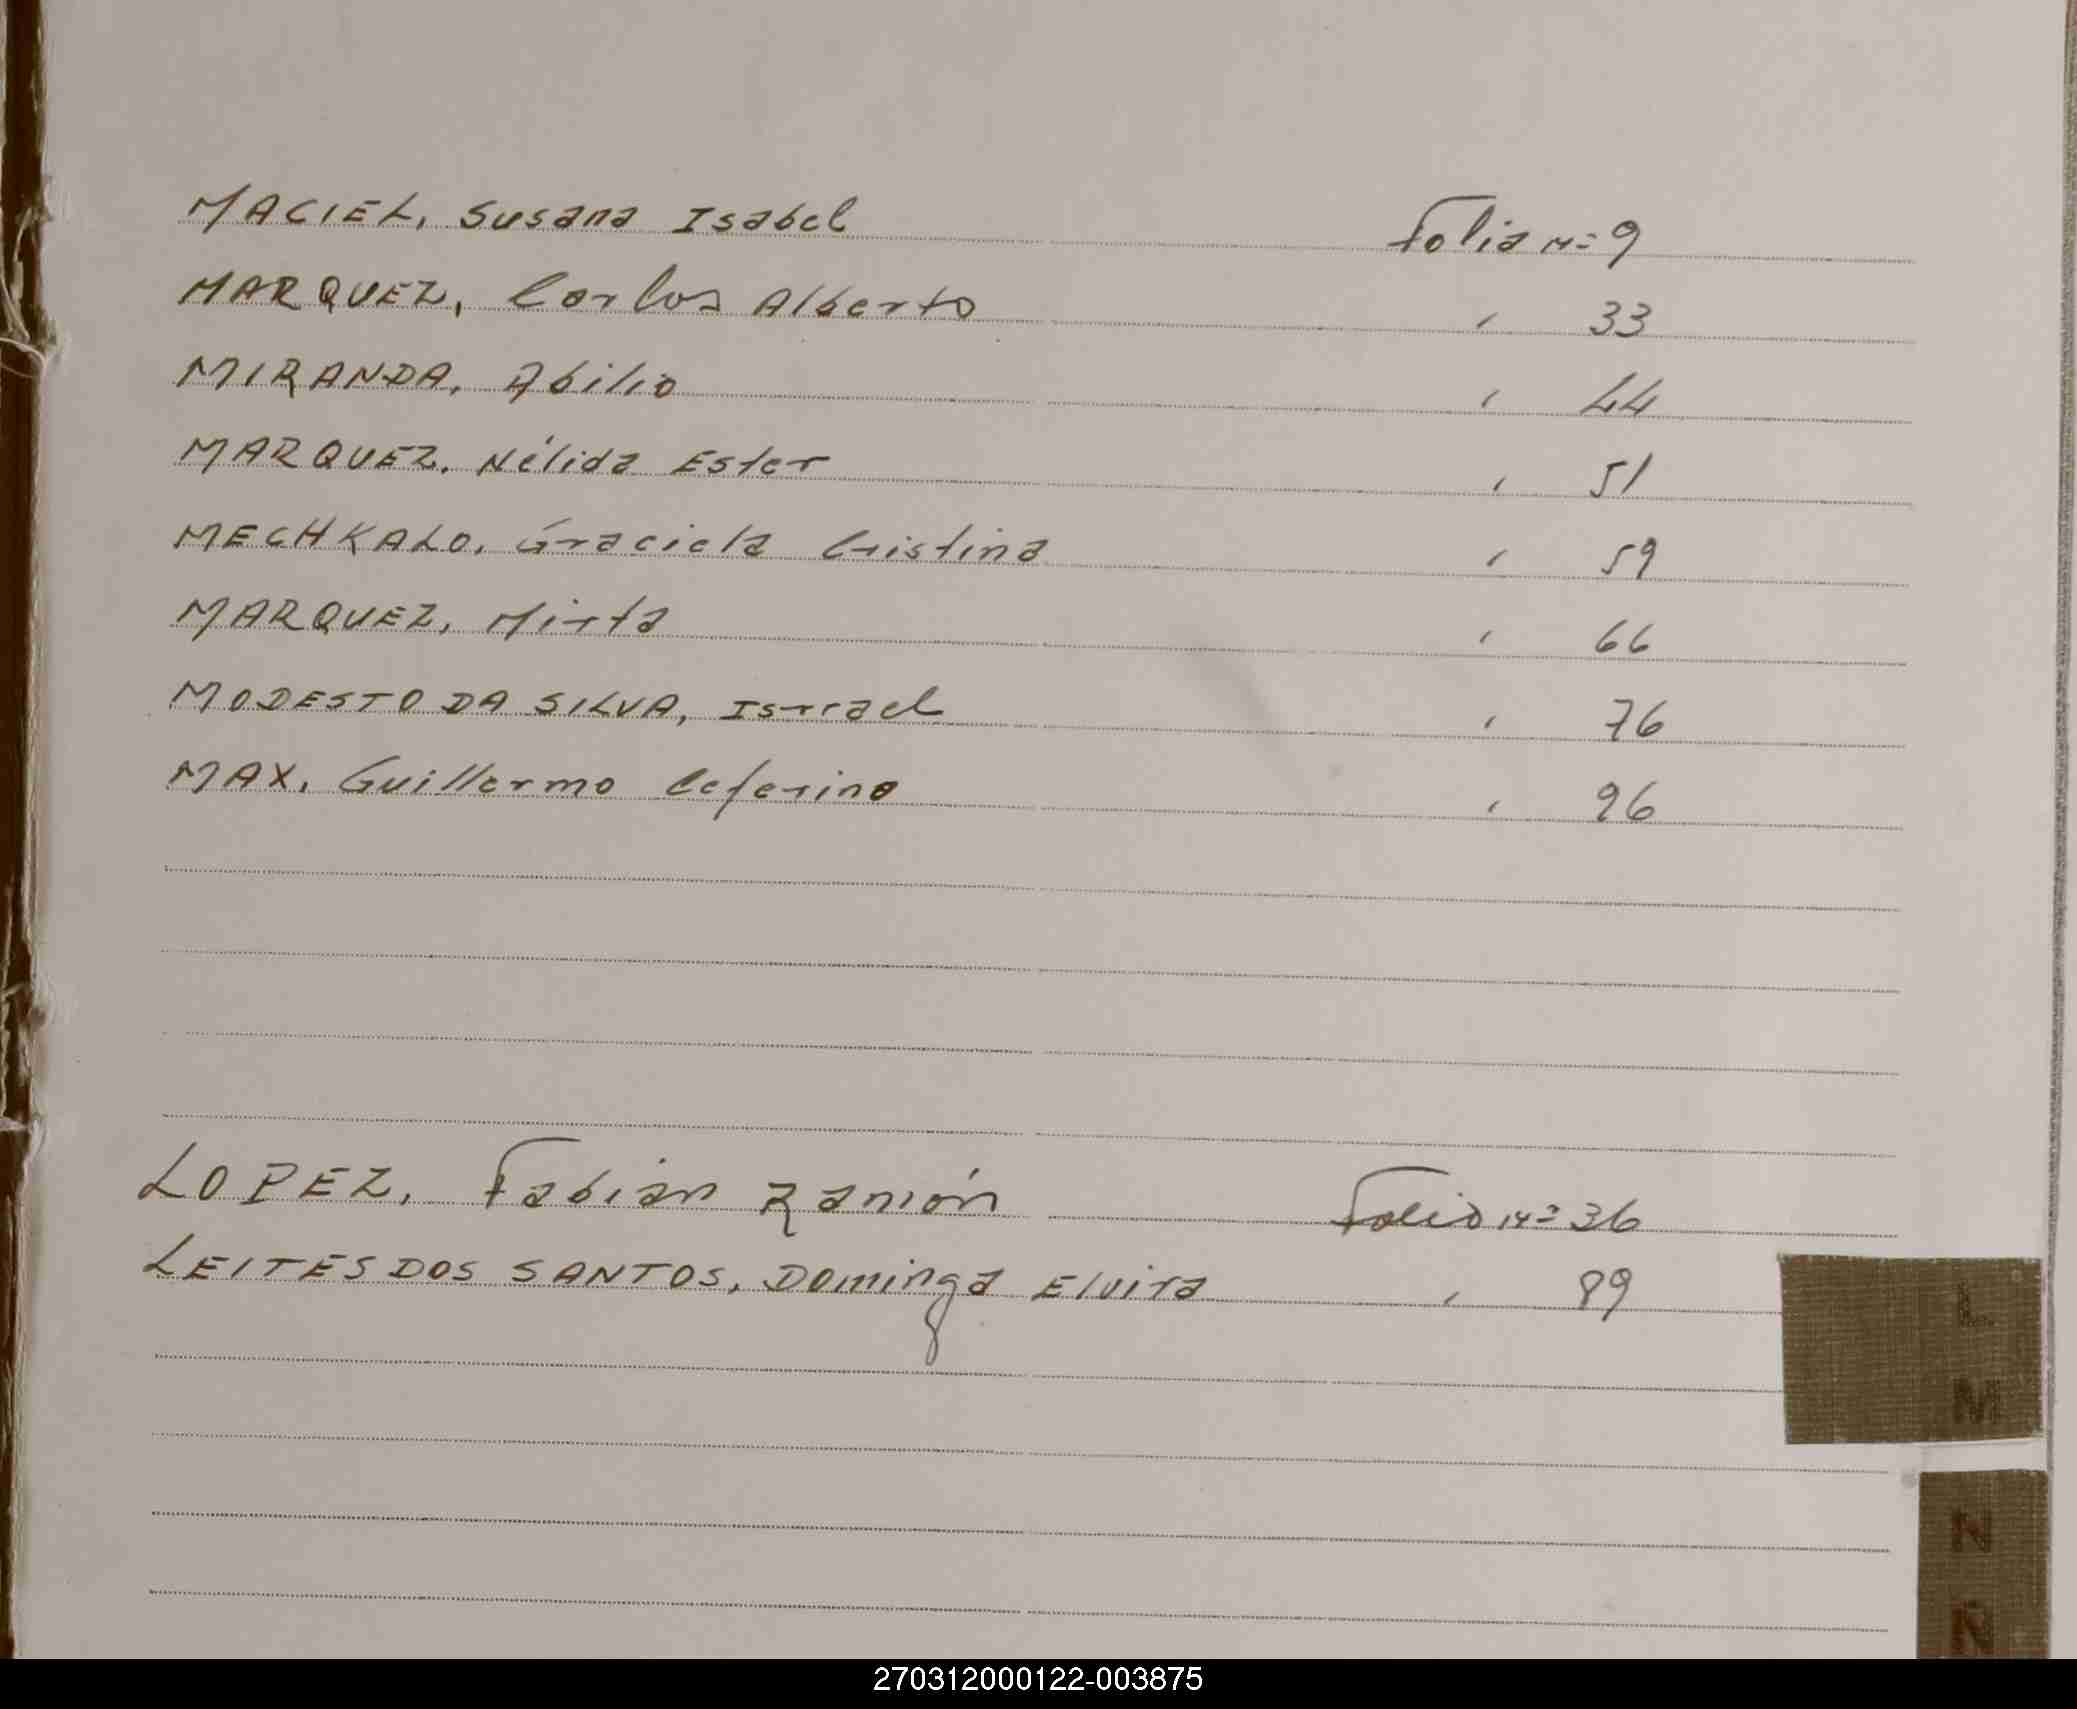 MACIEL, Susana Isabel Folio Nº 9
MARQUEZ, Carlos Alberto " 33
MIRANDA, Abilio " 44
MARQUEZ, Nélida Ester " 51
MECHKALO, Graciela Cristina " 59
MARQUEZ, Mirta " 66
MODESTO DA SILVA, Isrrael " 76
MAX, Guillermo Ceferino " 96
LOPEZ, Fabian Ramón Folio Nº 36
LEITES DOS SANTOS, Dominga Elvira " 89
L
M
N
Ñ
270312000122-003875